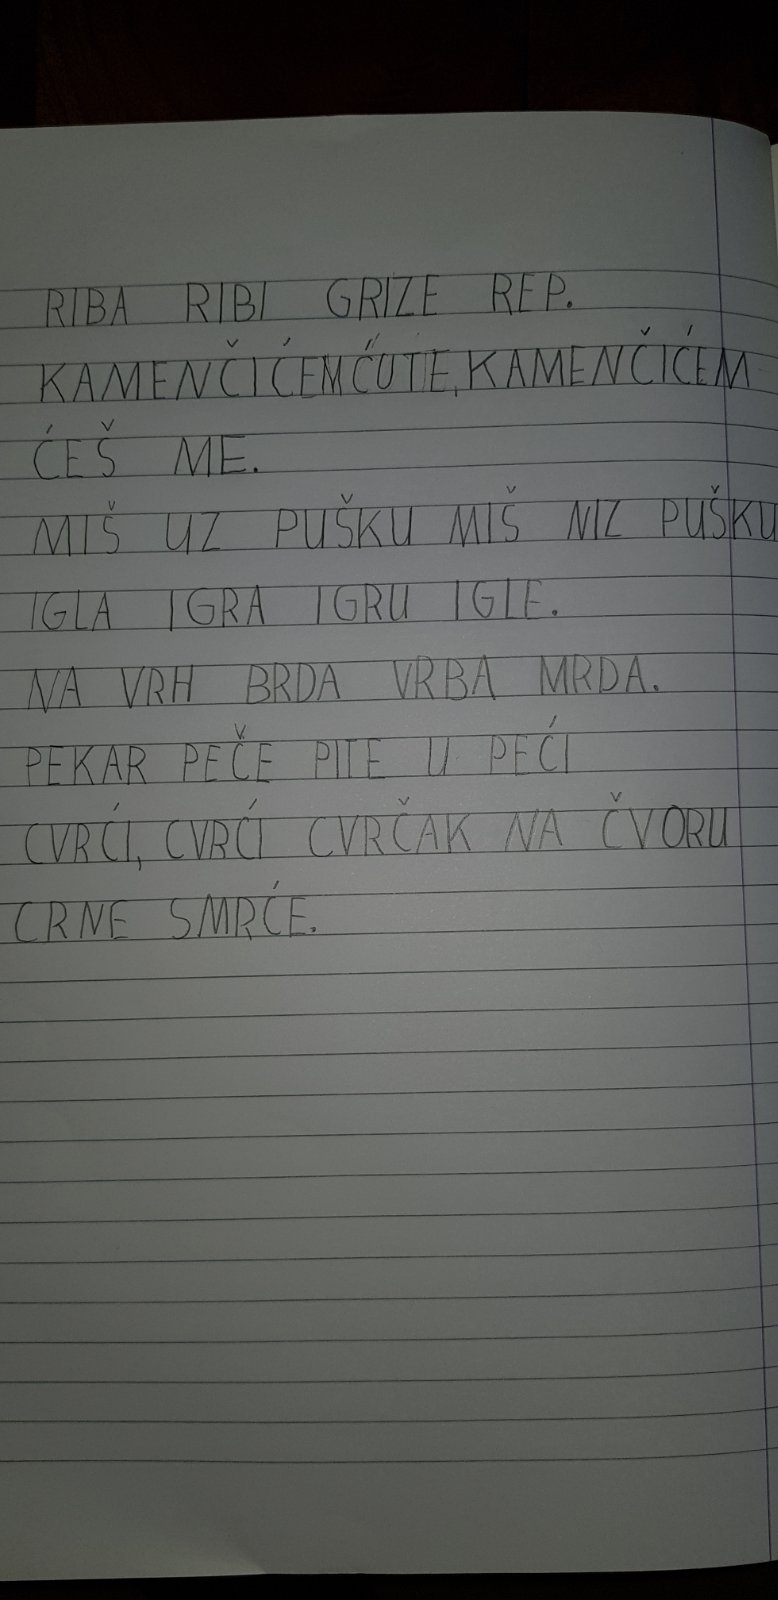 RIBA RIBI GRIZE REP.
KAMENČIĆEM ĆUTE, KAMENČIĆEM
ĆEŠ ME.
MIŠ UZ PUŠKU MIŠ NIZ PUŠKU
IGLA IGRA IGRU IGLE.
NA VRH BRDA VRBA MRDA.
PEKAR PEČE PITE U PEĆI
CVRĆI, CVRĆI CVRČAK NA ČVORU
CRNE SMRĆE.